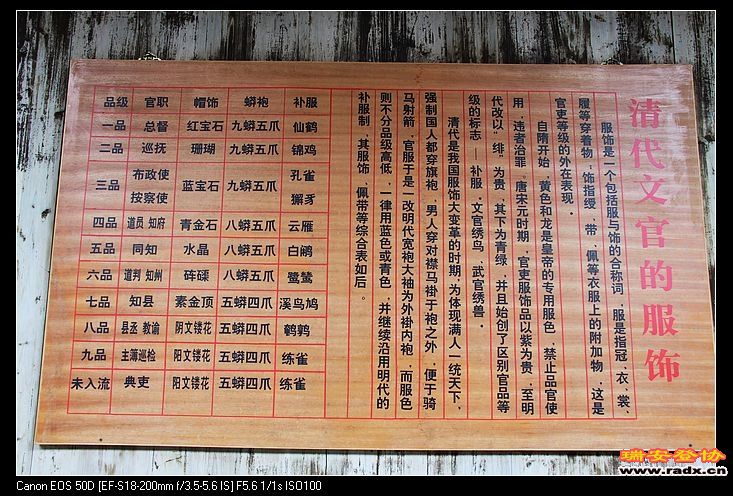 清代文官的服饰
服饰是一个包括服与饰的合称词，服是指冠、衣、裳、
履等穿着物，饰指绶、带、佩等衣服上的附加物，这是
官吏等级的外在表现。
自隋开始，黄色和龙是皇帝的专用服色，禁止品官使
用，违者治罪。唐宋元时期，官吏服饰品以紫为贵，至明
代改以“绯”为贵，其下为青绿，并且始创了区别官品等
级的标志——补服，文官绣鸟，武官绣兽。
清代是我国服饰大变革的时期，为体现满人一统天下，
强制国人都穿旗袍，男人穿对襟马褂于袍之外，便于骑
马射箭，官服于是一改明代宽袍大袖为外褂内袍，而服色
则不分品级高低，一律用蓝色或青色，并继续沿用明代的
补服制，其服饰、佩带等综合表如后。
品级 官职 帽饰 蟒袍 补服
一品 总督 红宝石 九蟒五爪 仙鹤
二品 巡抚 珊瑚 九蟒五爪 锦鸡
三品 布政使 按察使 蓝宝石 九蟒五爪 孔雀 獬豸
四品 道员 知府 青金石 八蟒五爪 云雁
五品 同知 水晶 八蟒五爪 白鹇
六品 道判 知州 砗磲 八蟒五爪 鹭鸶
七品 知县 素金顶 五蟒四爪 溪鸟鸠
八品 县丞 教谕 阴文镂花 五蟒四爪 鹌鹑
九品 主簿巡检 阳文镂花 五蟒四爪 练雀
未入流 典吏 阳文镂花 五蟒四爪 练雀
瑞安爸协
www.radx.cn
Canon EOS 50D [EF-S18-200mm f/3.5-5.6 IS] F5.6 1/1s ISO100